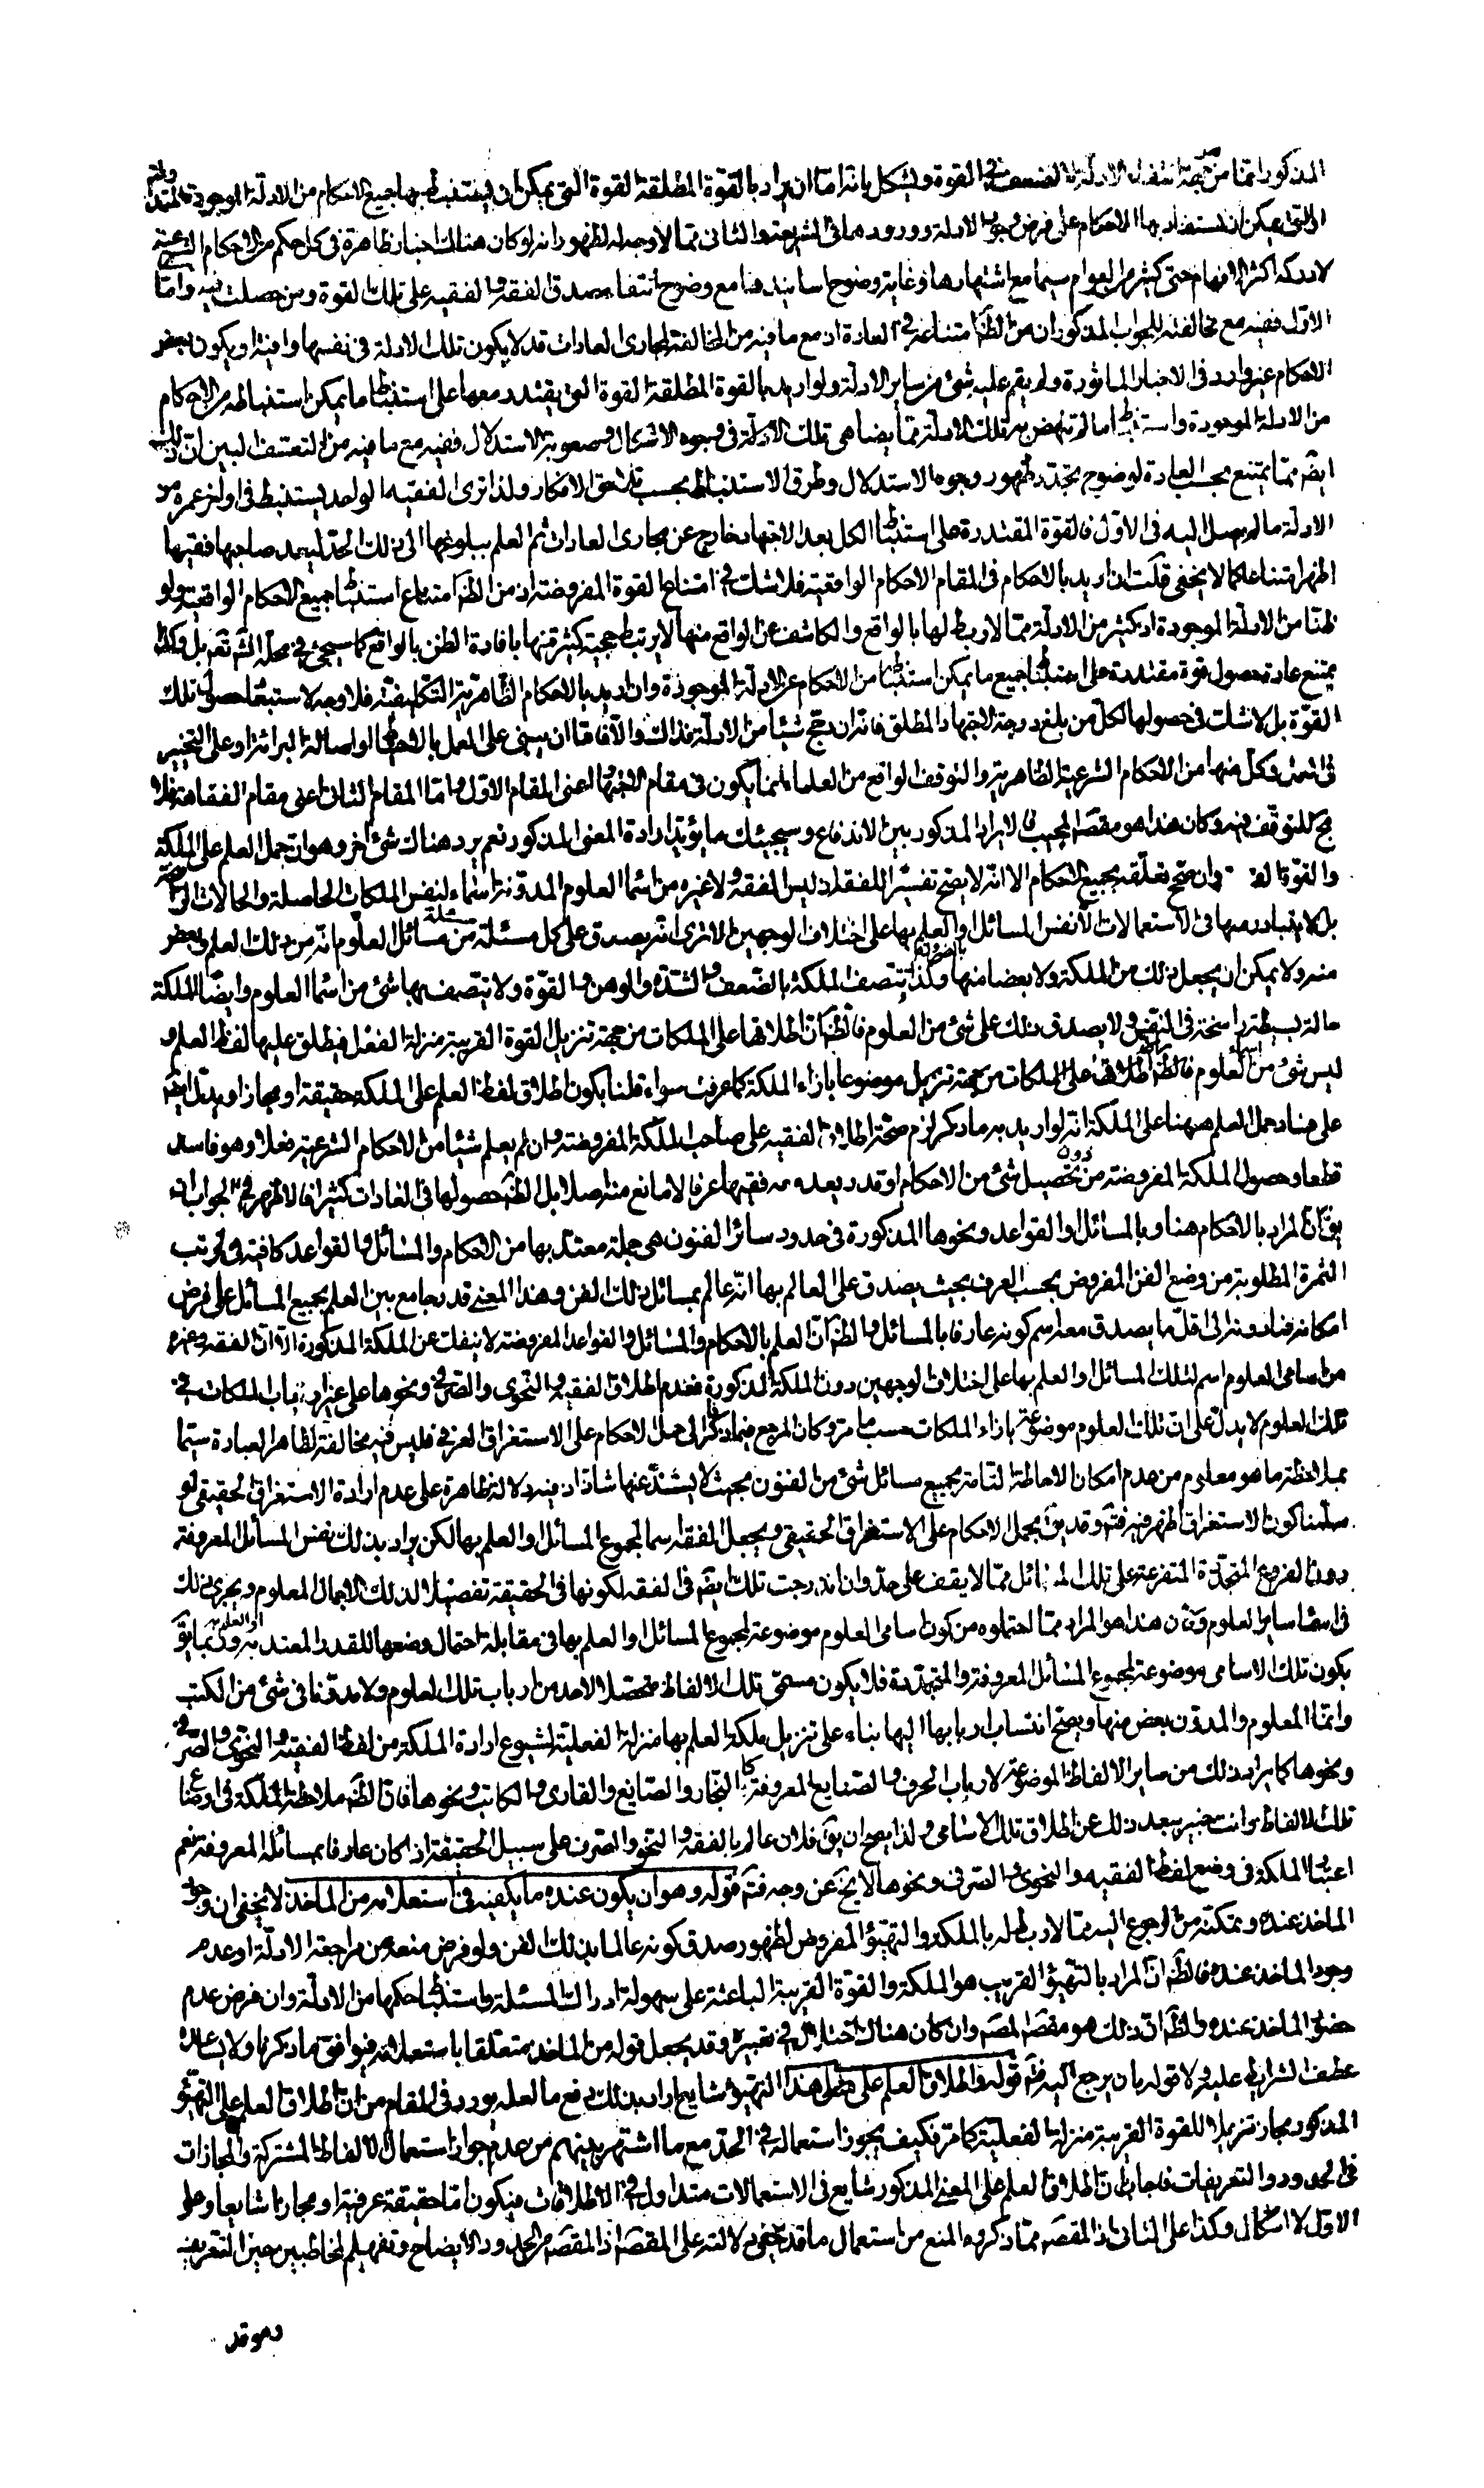 المذكور انما من جهة انتفاء الادلة لا لضعف في القوة ويشكل بانه اما ان يراد بالقوة المطلقة القوة التي يمكن ان يستنبط بها جميع الاحكام من الادلة الموجودة
او التي يمكن ان يستفاد بها الاحكام على فرض وجود الادلة وورودها في الشريعة والثاني مما لا وجه له لظهور انه لو كان هناك اخبار ظاهرة في كل حكم من الاحكام الشرعية
لادركه اكثر الافهام حتى كثير من العوام سيما مع اشتهارها وغاية وضوح اسانيدها مع وضوح انتفاء صدق الفقه والفقيه على تلك القوة ومن حصلت فيه واما
الاول ففيه مع مخالفته للجواب المذكور ان من الظ امتناعه في العادة اذ مع ما فيه من المخالفة لمجاري العادات قد لا يكون تلك الادلة في نفسها وافية او يكون بعض
الاحكام غير وارد في الاخبار الماثورة ولم يقم عليه شئ من ساير الادلة ولو اريد بالقوة المطلقة القوة التي يقتدر معها على استنباط ما يمكن استنباطه من الاحكام
من الادلة الموجودة واستنباط ما لم تنهض به تلك الادلة مما يضاهي تلك الادلة في وجوه الاشكال وصعوبة الاستدلال ففيه مع ما فيه من التعسف البين ان ذلك
ايضه مما يمتنع بحسب العادة لوضوح تجدد ظهور وجوه الاستدلال وطرق الاستنباط بحسب تلاحق الافكار ولذا ترى الفقيه الواحد يستنبط في اواخر عمره من
الادلة ما لم يصل اليه في الاول فالقوة المقتدرة على استنباط الكل بعد الاجتهاد خارج عن مجاري العادات ثم العلم ببلوغها الى ذلك الحد ليعد صاحبها فقيها
اظهر امتناعا كما لا يخفى قلت ان اريد بالاحكام في المقام الاحكام الواقعية فلا شك في امتناع القوة المفروضة اذ من الظ امتناع استنباط جميع الاحكام الواقعية ولو
ظنا من الادلة الموجودة اذ كثير من الادلة مما لا ربط لها بالواقع والكاشف عن الواقع منها لا يرتبط حجية كثير منها بافادة الظن بالواقع كما سيجئ في محله انش تعه بل وكذا
يمتنع عادة حصول قوة مقتدرة على استنباط جميع ما يمكن استنباطه من الاحكام عن الادلة الموجودة وان اريد بالاحكام الظاهرية التكليفية فلا وجه لاستبعاد حصول تلك
القوة بل لا شك في حصولها لكل من بلغ درجة الاجتهاد المطلق فانه ان رجح شيئا من الادلة فذاك والا فاما ان يبنى على العمل بالاحتياط او اصالة البرائة او على التخيير
في العمل وكل منها من الاحكام الشرعية الظاهرية والتوقف الواقع من العلماء انما يكون في مقام الاجتهاد اعنى المقام الاول واما المقام الثاني اعنى مقام الفقاهة فلا
مجال للتوقف فيه وكان هذا هو مقصد المجيب فالايراد المذكور بين الاندفاع وسيجيئك ما يؤيد ارادة المعنى المذكور نعم يرد هناك شئ اخر وهو ان حمل العلم على الملكة
والقوة وان صح تعلقه بجميع الاحكام الا انه لا يصح تفسيرا للفقه اذ ليس الفقه ولا غيره من اسماء العلوم المدونة اسماء لنفس الملكات الحاصلة والحالات
بل لا يتبادر منها في الاستعمالات الا نفس المسائل او العلم بها على اختلاف الوجهين الا ترى انه يصدق على كل مسئلة من مسائل العلوم انه من ذلك العلم وبعض
منه ولا يمكن ان يجعل ذلك من الملكة ولا بعضا منها وكذا يتصف الملكة بالضعف والشدة والوهن والقوة ولا يتصف بها شئ من اسماء العلوم وايضا الملكة
حالة بسيطة راسخة في النفس ولا يصدق ذلك على شئ من العلوم فالظ ان اطلاقها على الملكات من جهة تنزيل القوة القريبة منزلة الفعل فيطلق عليها لفظ العلم و
ليس شئ من اسماء العلوم موضوعا بازاء الملكة كما عرفت سواء قلنا بكون اطلاق لفظ العلم على الملكة حقيقة او مجازا ويدل ايضه
على فساد حمل العلم ههنا على الملكة انه لو اريد به ما ذكر لزم صحة اطلاق الفقيه على صاحب الملكة المفروضة وان لم يعلم شيئا من الاحكام الشرعية فعلا وهو فاسد
قطعا وحصول الملكة المفروضة من دون تحصيل شئ من الاحكام او قدر يعد معه فقيها عرفا لا مانع منه اصلا بل الظ حصولها في العادات كثيرا فالاظهر في الجواب ان
يق ان المراد بالاحكام هنا وبالمسائل والقواعد ونحوها المذكورة في حدود سائر الفنون هي جملة معتد بها من الاحكام والمسائل والقواعد كافية في ترتب
الثمرة المطلوبة من وضع الفن المفروض بحسب العرف بحيث يصدق على العالم بها انه عالم بمسائل ذلك الفن وهذا المعنى قد يجامع بين العلم بجميع المسائل على فرض
امكانه فنازلا الى اقل ما يصدق معه اسم كونه عارفا بالمسائل والظ ان العلم بالاحكام والمسائل والقواعد المفروضة لا ينفك عن الملكة المذكورة الا ان الفقه وغيره
من اسامي العلوم اسم لتلك المسائل او العلم بها على اختلاف الوجهين دون الملكة المذكورة فعدم اطلاق الفقيه والنحوي والصرفي ونحوها على غير ارباب الملكات في
تلك العلوم لا يدل على ان تلك العلوم موضوعة بازاء الملكات حسب ما مر وكان المرجع فيما ذكرنا الى حمل الاحكام على الاستغراق العرفي فليس فيه مخالفة لظاهر العبارة سيما
بملاحظة ما هو معلوم من عدم امكان الاحاطة التامة بجميع مسائل شئ من الفنون بحيث لا يشذ عنها شاذ اذ فيه دلالة ظاهرة على عدم ارادة الاستغراق الحقيقي لو
سلمنا كون الاستغراق اظهر فيه فتم وقد يق بحمل الاحكام على الاستغراق الحقيقي ويجعل الفقه اسما لمجموع المسائل او العلم بها لكن يراد بذلك نفس المسائل المعروفة
دون الفروع المتجددة المتفرعة على تلك المسائل مما لا يقف على حد وان اندرجت تلك ايضه في الفقه لكونها في الحقيقة تفصيلا لذلك الاجمال المعلوم ويجري ذلك
في اسماء ساير العلوم وكان هذا هو المراد مما احتملوه من كون اسامي العلوم موضوعة لمجموع المسائل او العلم بها في مقابلة احتمال وضعها للقدر المعتد به او العلم به وربما يق
بكون تلك الاسامي موضوعة لمجموع المسائل المعروفة والمتجددة فلا يكون مسمى تلك الالفاظ متحصلا لاحد من ارباب تلك العلوم ولا مدونا في شئ من الكتب
وانما المعلوم والمدون بعض منها ويصح انتساب اربابها اليها بناء على تنزيل ملكة العلم بها منزلة الفعلية لشيوع ارادة الملكة من لفظ الفقيه والنحوي والصرفي
ونحوها كما يراد ذلك من ساير الالفاظ الموضوعة لارباب الحرف والصنايع المعروفة كالنجار والصانع والقاري والكاتب ونحوها فان الظ ملاحظة الملكة في اوضاع
تلك الالفاظ وانت خبير ببعد ذلك عن اطلاق تلك الاسامي ولذا يصح ان يق فلان عالم بالفقه والنحو والصرف على سبيل الحقيقة اذا كان عارفا بمسائله المعروفة نعم
اعتبار الملكة في وضع لفظ الفقيه والنحوي والصرفي ونحوها لا يخ عن وجه فتم قوله وهو ان يكون عنده ما يكفيه في استعلامه من الماخذ لا يخفى ان وجود
الماخذ عنده وتمكنه من الرجوع اليه مما لا ربط له بالملكة والتهيؤ المفروض لظهور صدق كونه عالما بذلك الفن ولو فرض منعه من مراجعة الادلة او عدم
وجود الماخذ عنده فالظ ان المراد بالتهيؤ القريب هو الملكة والقوة القريبة الباعثة على سهولة ادراك المسئلة واستنباط حكمها من الادلة وان فرض عدم
حضور الماخذ عنده والظ ان ذلك هو مقصد المصه وان كان هناك اختلال في تعبيره وقد يجعل قوله من الماخذ متعلقا باستعلامه فيوافق ما ذكرنا ولا يساعده
عطف الشرايط عليه ولا قوله بان يرجع اليه فتم قوله واطلاق العلم على مثل هذا التهيؤ شايع اراد بذلك دفع ما لعله يورد في المقام من ان اطلاق العلم على التهيؤ
المذكور مجاز تنزيلا للقوة القريبة منزلة الفعلية كما مر فكيف يجوز استعماله في الحد مع ما اشتهر بينهم من عدم جواز استعمال الالفاظ المشتركة والمجازات
في الحدود والتعريفات فاجاب بان اطلاق العلم على المعنى المذكور شايع في الاستعمالات متداول في الاطلاقات فيكون اما حقيقة عرفية او مجازا شايعا وعلى
الاول لا اشكال وكذا على الثاني اذ المقصه مما ذكروه المنع من استعمال ما قد يخفى دلالته على المقصه اذ المقصه من الحدود الايضاح وتفهيم المخاطبين حين التعريف
وهو قد